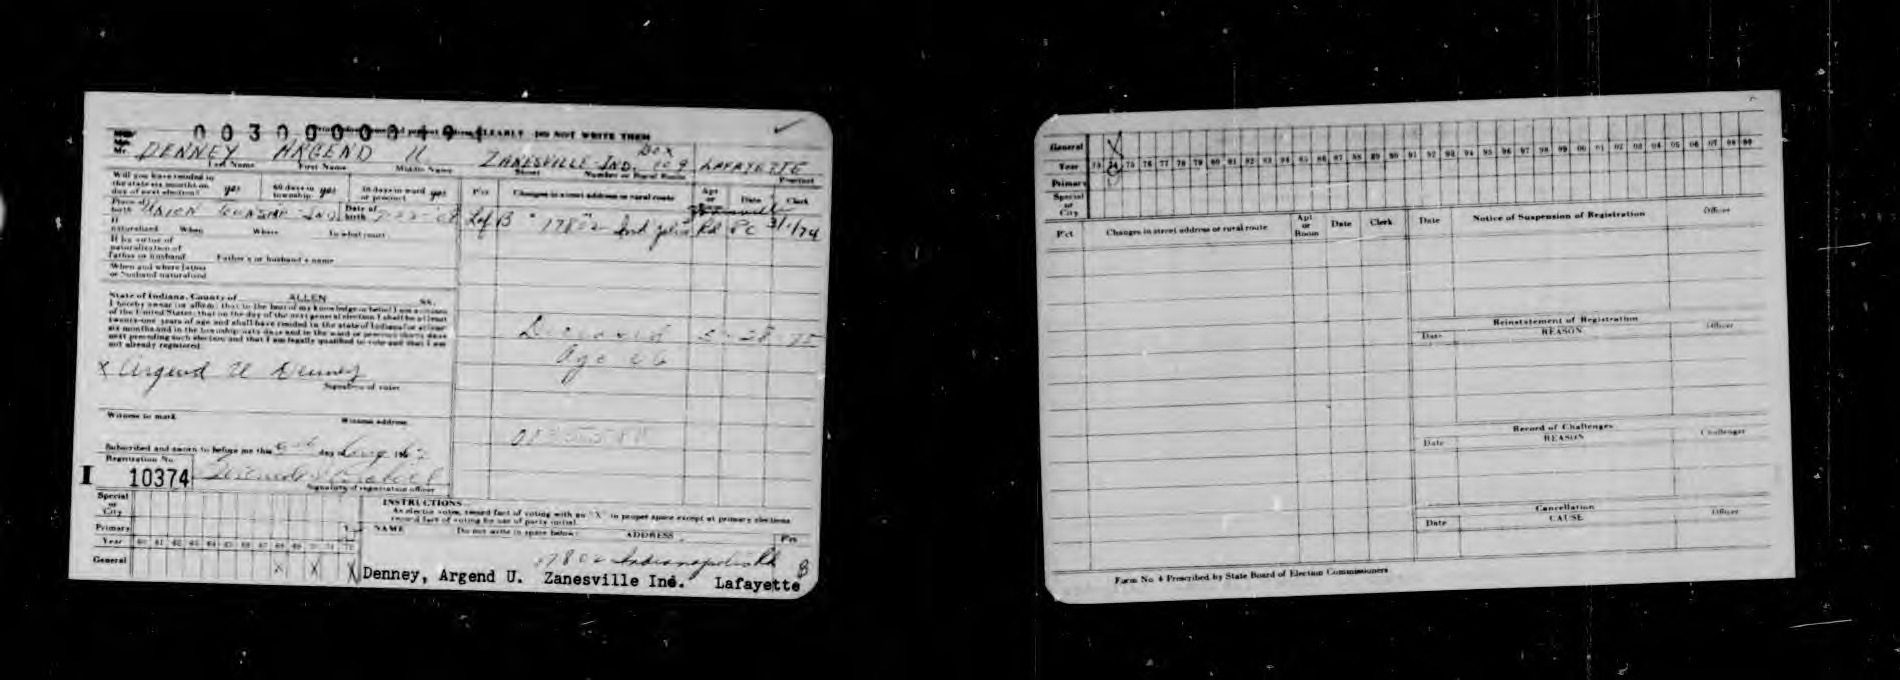 CLEARLY DO NOT WRITE THEM
Mr. DENNEY ARGEND U ZANESVILLE IND. Box 109 LAFAYETTE
Last Name First Name Middle Name Street Number or Rural Route Precinct
Will you have resided in the state six months on day of next election? yes 60 days in township yes 30 days in ward or precinct yes
P'ct Changes in street address or rural route Apt or Room Date Clerk
Place of birth UNION TOWNSHIP IND. Date of birth
Laf B 17802 Indpolis Rd PC 3/1/74
If naturalized When Where In what court
If by virtue of naturalization of father or husband Father's or husband's name
When and where father or husband naturalized
State of Indiana, County of ALLEN ss.
I hereby swear (or affirm) that to the best of my knowledge or belief I am a citizen
of the United States; that on the day of the next general election I shall be at least
twenty-one years of age and shall have resided in the state of Indiana for at least
six months and in the township sixty days and in the ward or precinct thirty days
next preceding such election and that I am legally qualified to vote and that I am
not already registered.
Deceased 5-28-75
Age 66
X Argend U Denney
Signature of voter
Witness to mark Witness address
Subscribed and sworn to before me this day
Registration No.
I 10374
Signature of registration officer
INSTRUCTIONS
As elector votes, record fact of voting with an "X" in proper space except at primary elections
record fact of voting by use of party initial.
NAME Do not write in space below: ADDRESS P'ct
Special or City
Primary
Year 60 61 62 63 64 65 66 67 68 69 70 71 72
General X X X
17802 Indianapolis Rd B
Denney, Argend U. Zanesville Ind. Lafayette
General X
Year 73 74 75 76 77 78 79 80 81 82 83 84 85 86 87 88 89 90 91 92 93 94 95 96 97 98 99 00 01 02 03 04 05 06 07 08 09
Primary
Special or City
P'ct Changes in street address or rural route Apt or Room Date Clerk
Date Notice of Suspension of Registration Officer
Reinstatement of Registration
Date REASON Officer
Record of Challenges
Date REASON Challenger
Cancellation
Date CAUSE Officer
Form No. 4 Prescribed by State Board of Election Commissioners